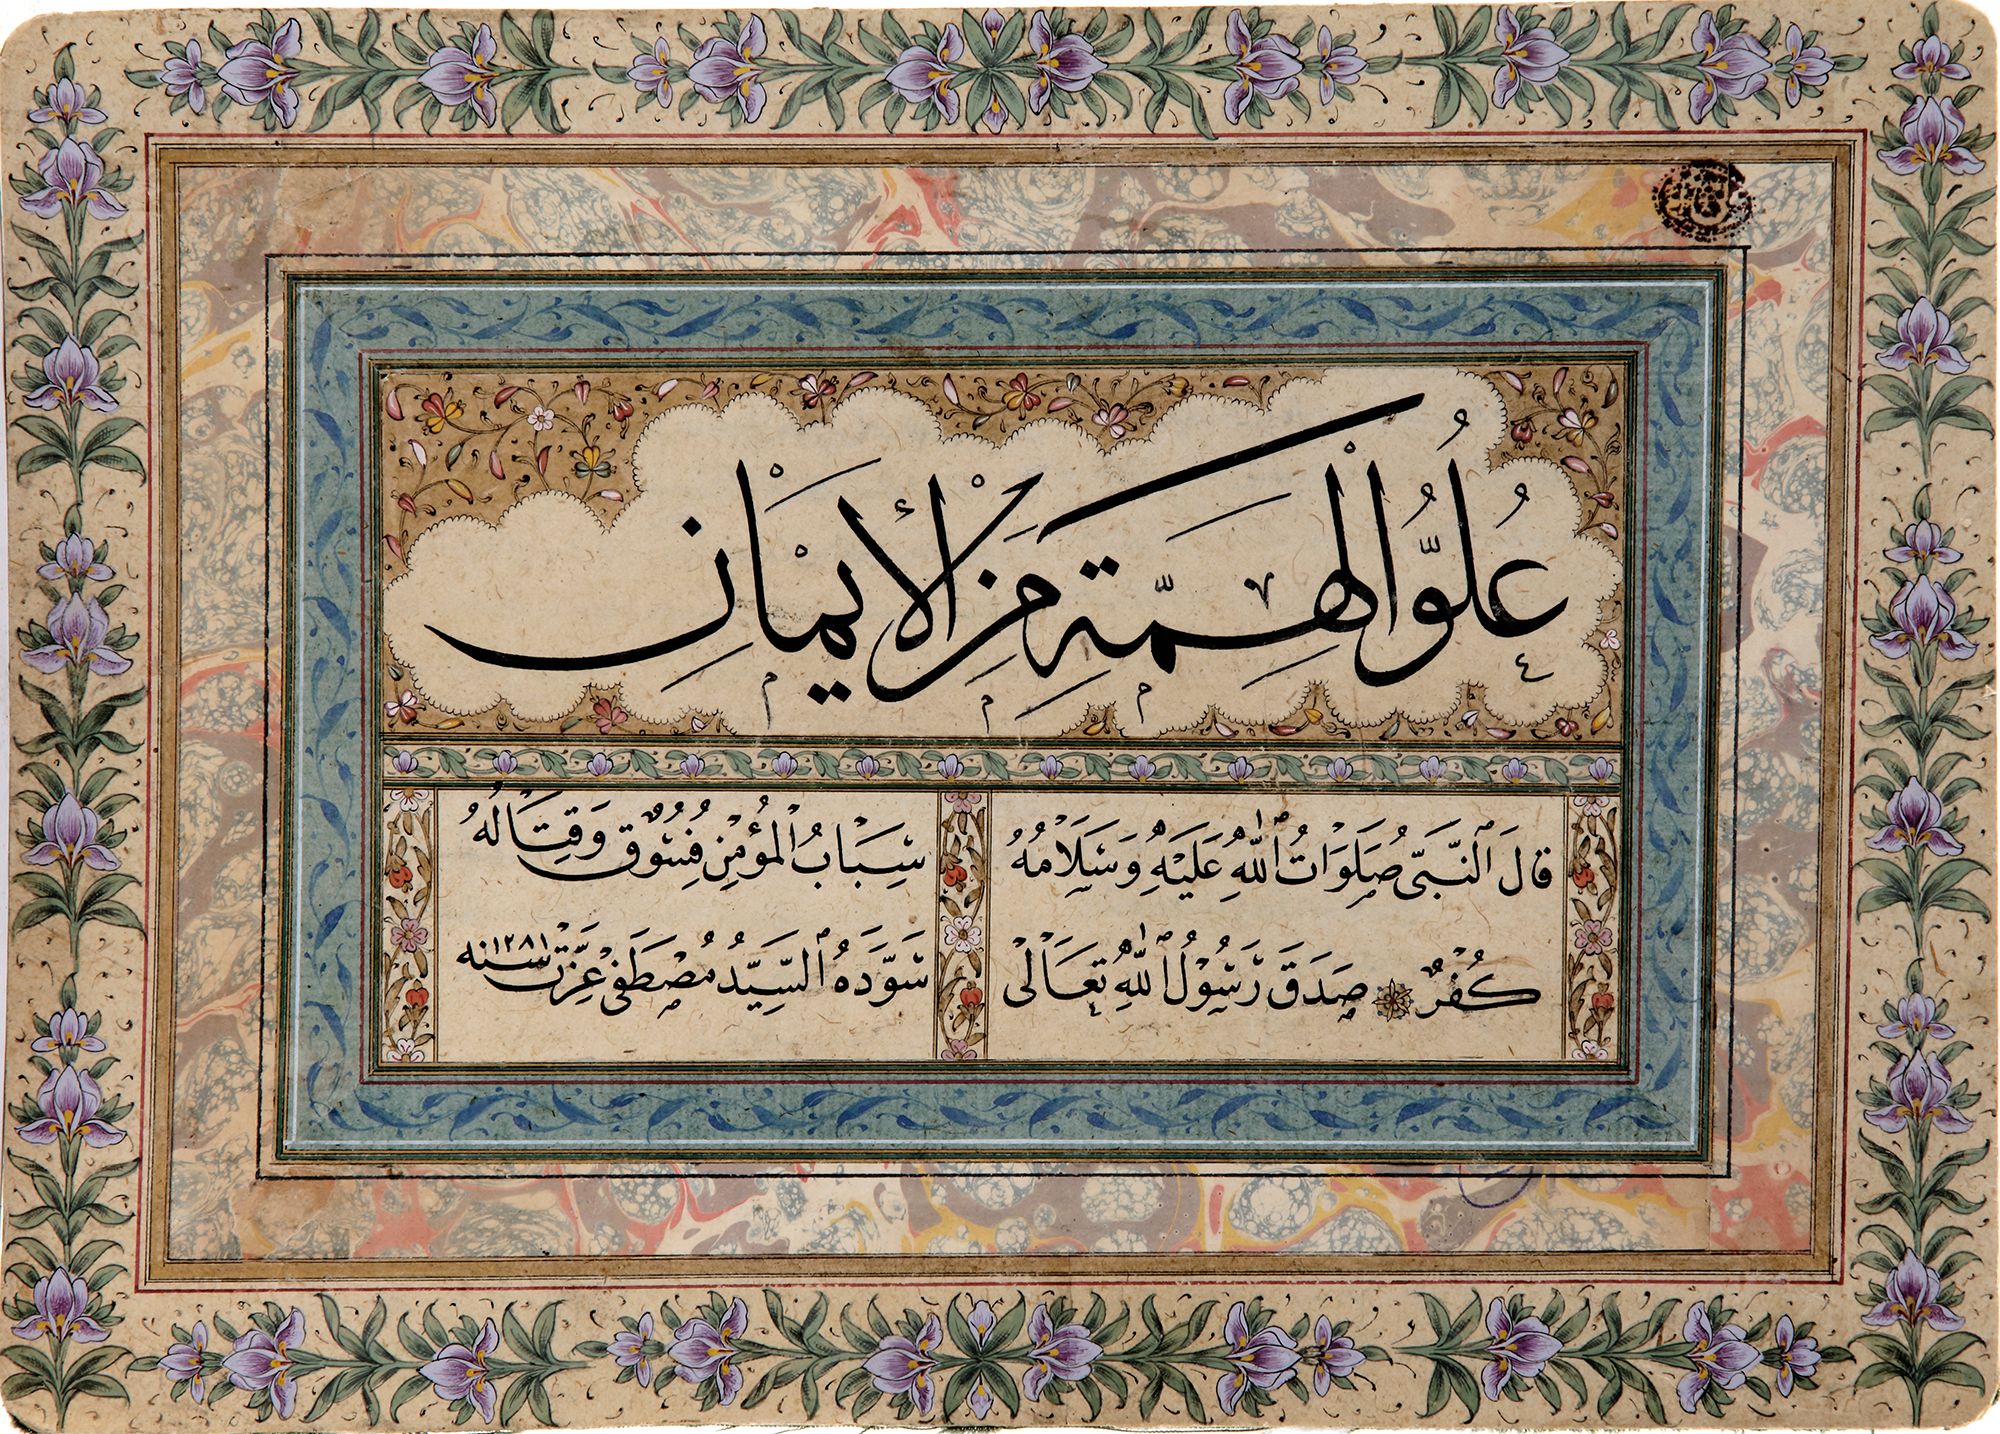 عُلُوُّ الْهِمَّةِ مِنَ الْأِيمَانِ
قَالَ النَّبِيُّ صَلَوَاتُ اللّٰهِ عَلَيْهِ وَسَلَامُهُ
سِبَابُ الْمُؤْمِنِ فُسُوقٌ وَقِتَالُهُ
كُفْرٌ صَدَقَ رَسُولُ اللّٰهِ تَعَالَى
سَوَّدَهُ السَّيِّدُ مُصْطَفَى عِزَّتْ سنه ١٢٨١